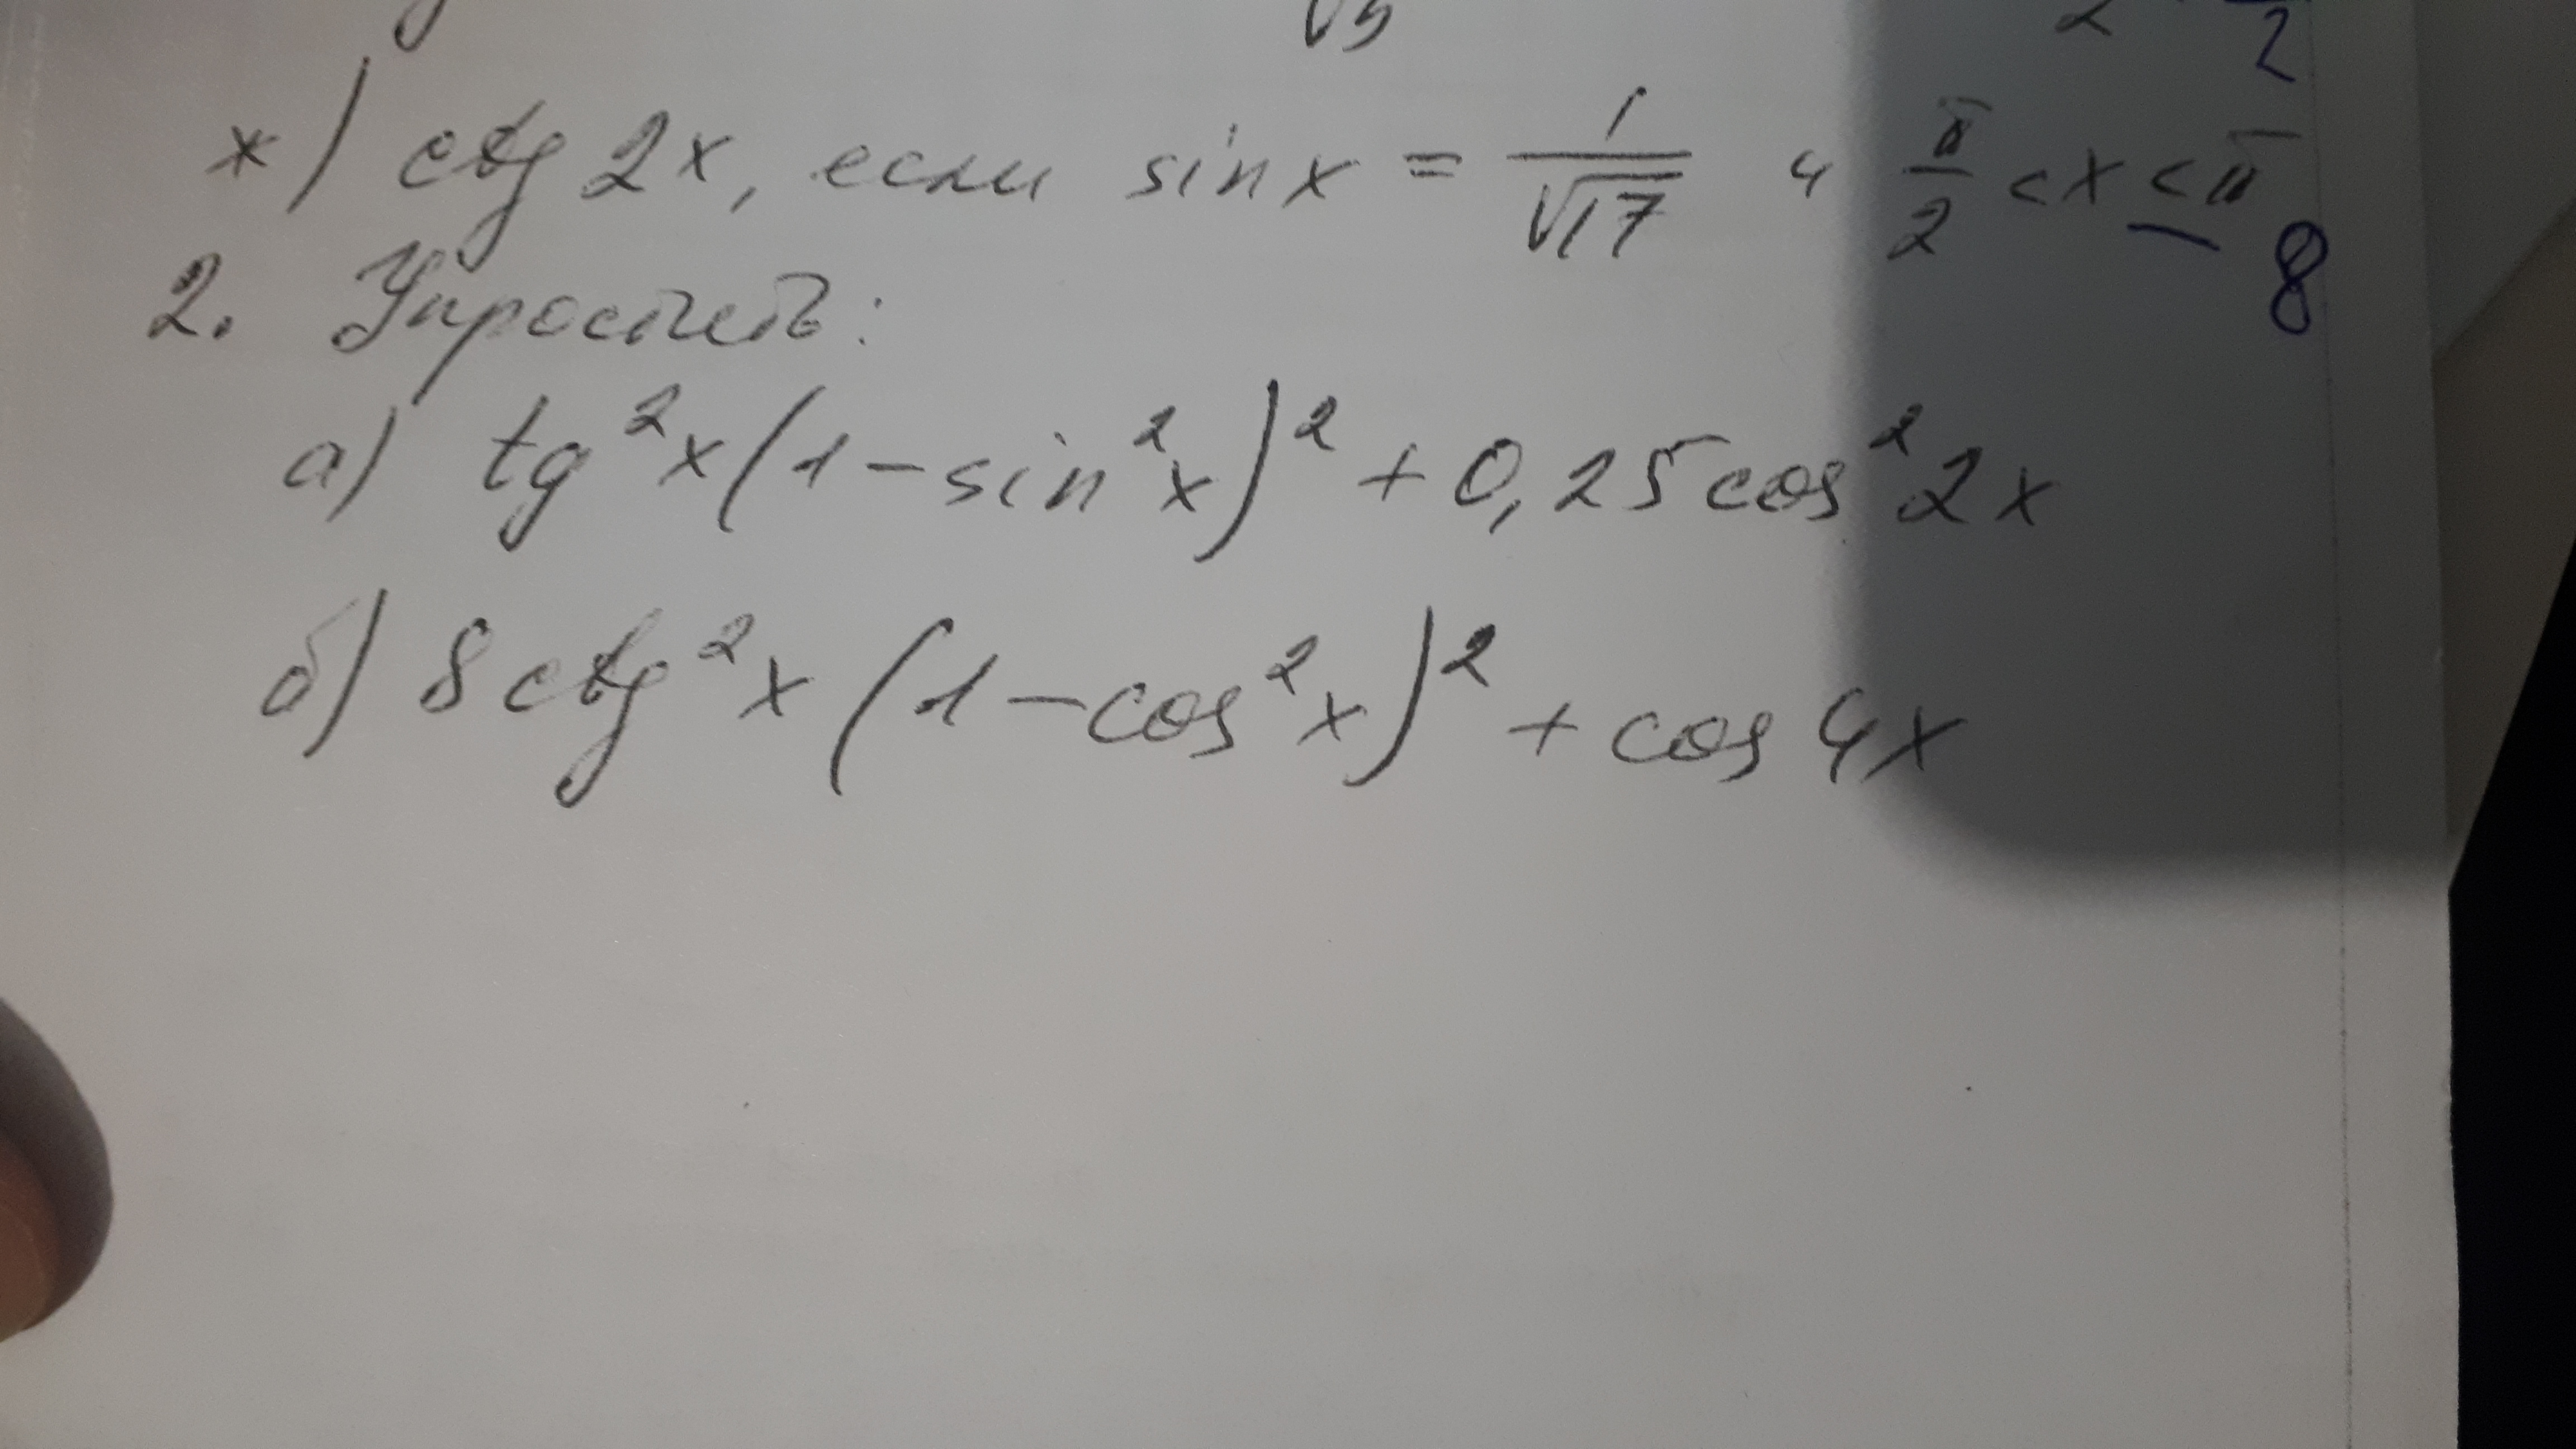 √5 2 2
ж) ctg 2x, если sin x = 1/√17 и π/2 < x < π
— 8
2. Упростить:
а) tg²x(1 - sin²x)² + 0,25cos²2x
б) 8ctg²x(1 - cos²x)² + cos 4x